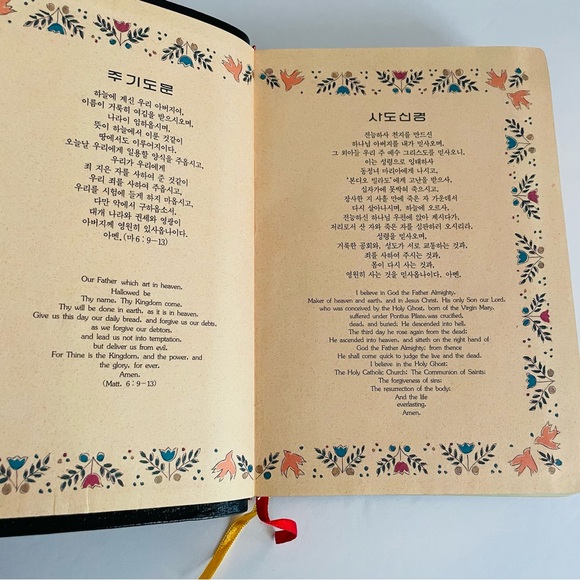 주기도문
하늘에 계신 우리 아버지여,
이름이 거룩히 여김을 받으시오며,
나라이 임하옵시며,
뜻이 하늘에서 이룬 것같이
땅에서도 이루어지이다.
오늘날 우리에게 일용할 양식을 주옵시고,
우리가 우리에게
죄 지은 자를 사하여 준 것같이
우리 죄를 사하여 주옵시고,
우리를 시험에 들게 하지 마옵시고,
다만 악에서 구하옵소서.
대개 나라와 권세와 영광이
아버지께 영원히 있사옵나이다.
아멘.(마 6 : 9-13)
Our Father which art in heaven,
Hallowed be
Thy name. Thy Kingdom come,
Thy will be done in earth, as it is in heaven.
Give us this day our daily bread, and forgive us our debts,
as we forgive our debtors,
and lead us not into temptation,
but deliver us from evil,
For Thine is the Kingdom, and the power, and
the glory, for ever.
Amen.
(Matt. 6 : 9-13)
사도신경
전능하사 천지를 만드신
하나님 아버지를 내가 믿사오며,
그 외아들 우리 주 예수 그리스도를 믿사오니,
이는 성령으로 잉태하사
동정녀 마리아에게 나시고,
'본디오 빌라도'에게 고난을 받으사,
십자가에 못박혀 죽으시고,
장사한 지 사흘 만에 죽은 자 가운데서
다시 살아나시며, 하늘에 오르사,
전능하신 하나님 우편에 앉아 계시다가,
저리로서 산 자와 죽은 자를 심판하러 오시리라.
성령을 믿사오며,
거룩한 공회와, 성도가 서로 교통하는 것과,
죄를 사하여 주시는 것과,
몸이 다시 사는 것과,
영원히 사는 것을 믿사옵나이다. 아멘.
I believe in God the Father Almighty,
Maker of heaven and earth, and in Jesus Christ, His only Son our Lord,
who was conceived by the Holy Ghost, born of the Virgin Mary,
suffered under Pontius Pilate, was crucified,
dead, and buried: He descended into hell.
The third day he rose again from the dead:
He ascended into heaven, and sitteth on the right hand of
God the Father Almighty: from thence
He shall come quickly to judge the live and the dead.
I believe in the Holy Ghost:
The Holy Catholic Church: The Communion of Saints:
The forgiveness of sins:
The resurrection of the body:
And the life
everlasting.
Amen.